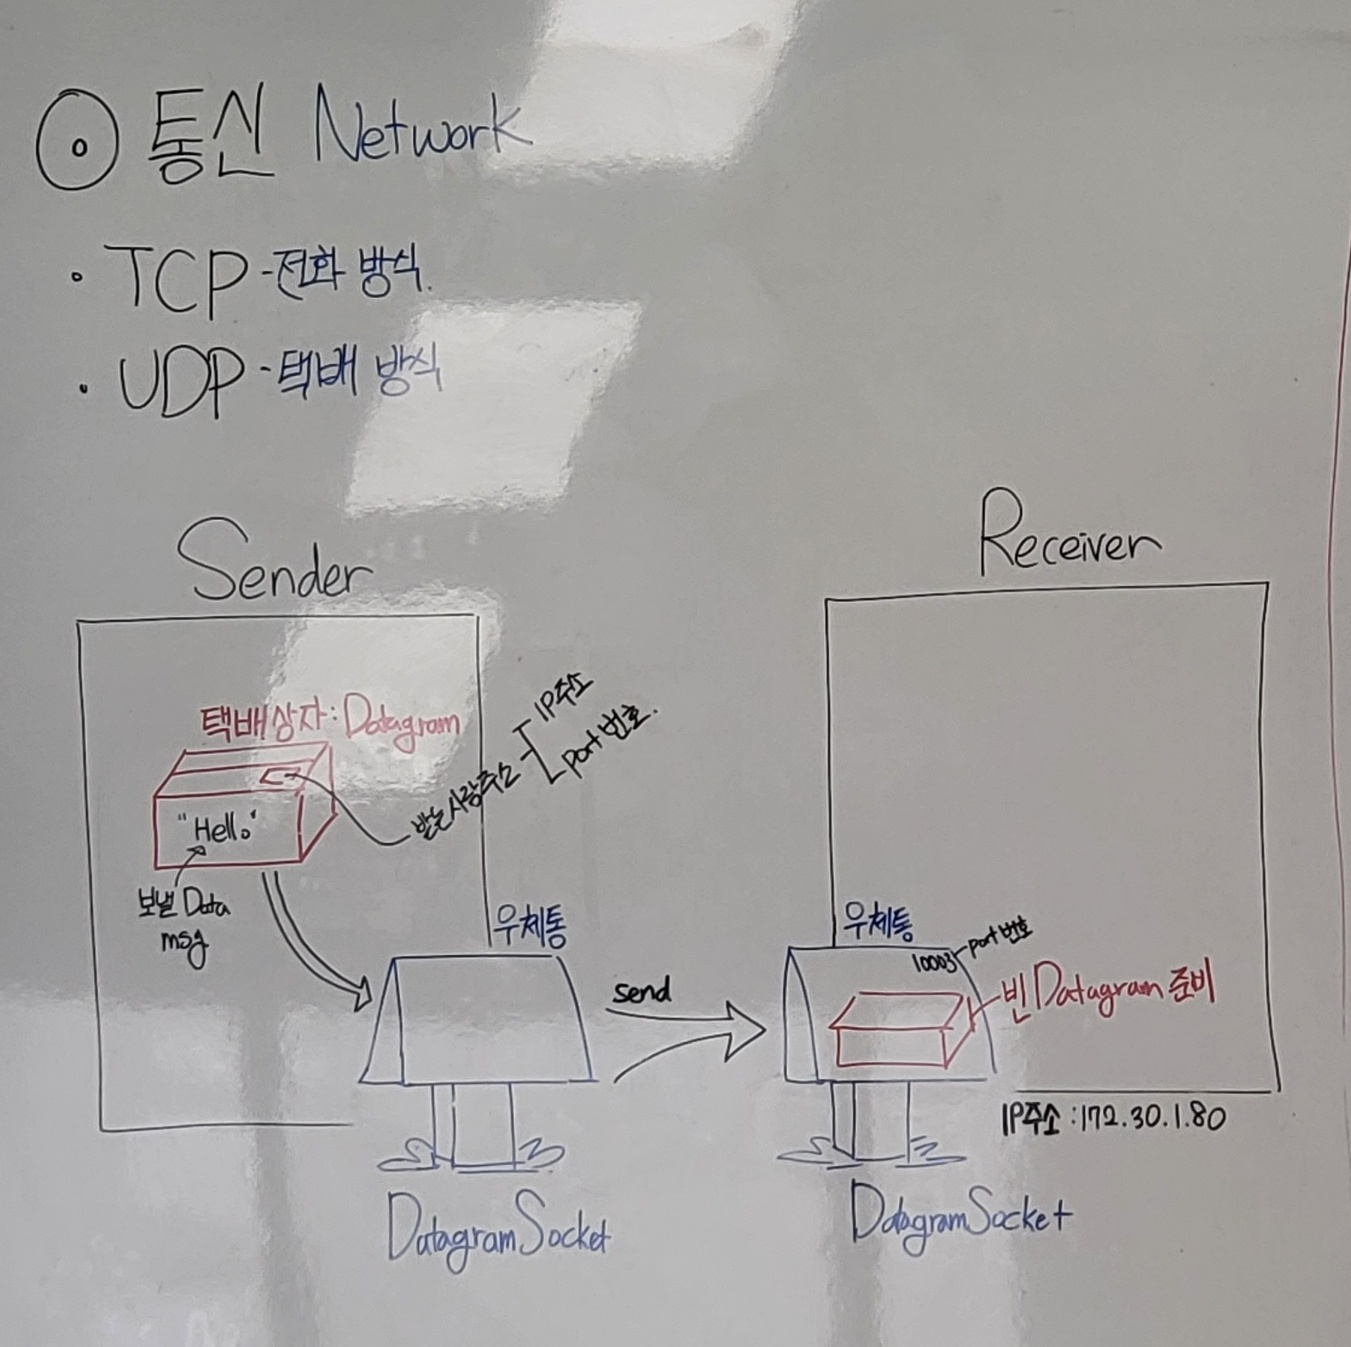 ⊙ 통신 Network
· TCP - 전화 방식.
· UDP - 택배 방식
Sender
택배상자 : Datagram
"Hello"
보낼 Data
msg
받는사람주소
IP주소
port 번호.
우체통
DatagramSocket
send
Receiver
우체통
10003
port 번호
빈 Datagram 준비
IP주소 : 172.30.1.80
DatagramSocket